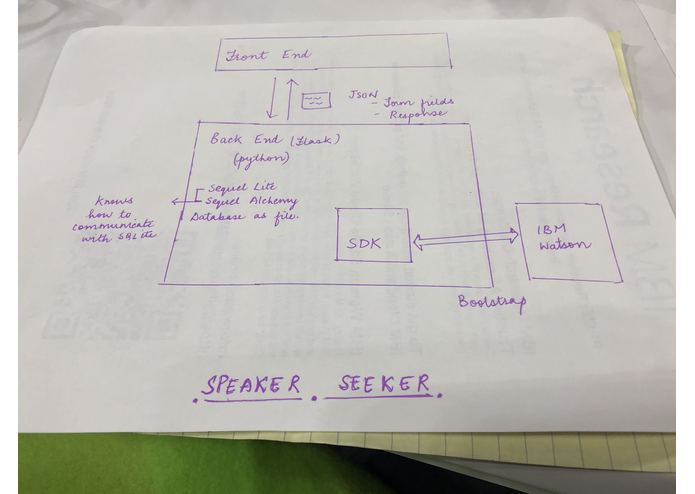 Front End
JSON
- Form fields
- Response
Back End (Flask)
(python)
Sequel Lite
Sequel Alchemy
Database as file.
Knows
how to
communicate
with SQLite
SDK
IBM
Watson
Bootstrap
. SPEAKER . SEEKER .